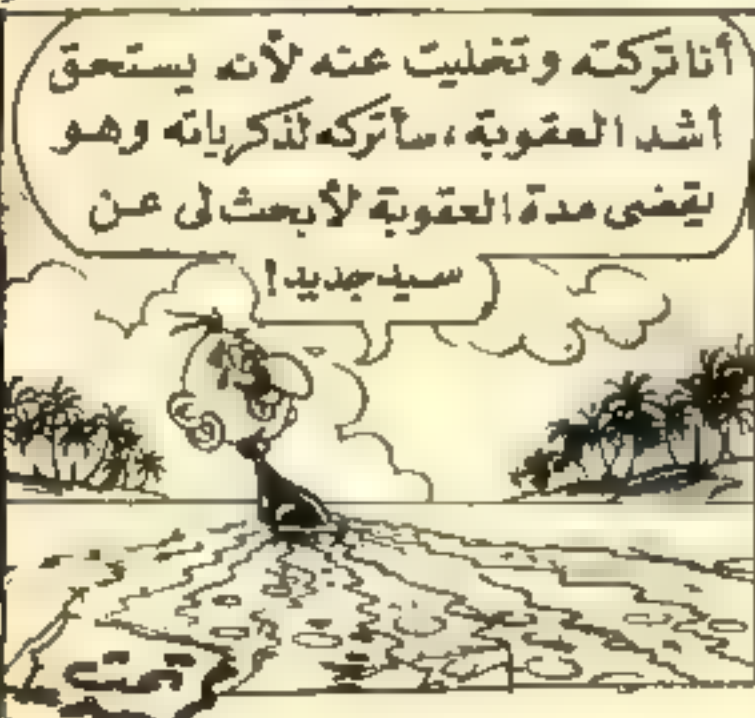 أنا تركته وتخليت عنه لأنه يستحق
أشد العقوبة، سأتركه لذكرياته وهو
يقضى مدة العقوبة لأبحث لى عن
سيد جديد!
تمت